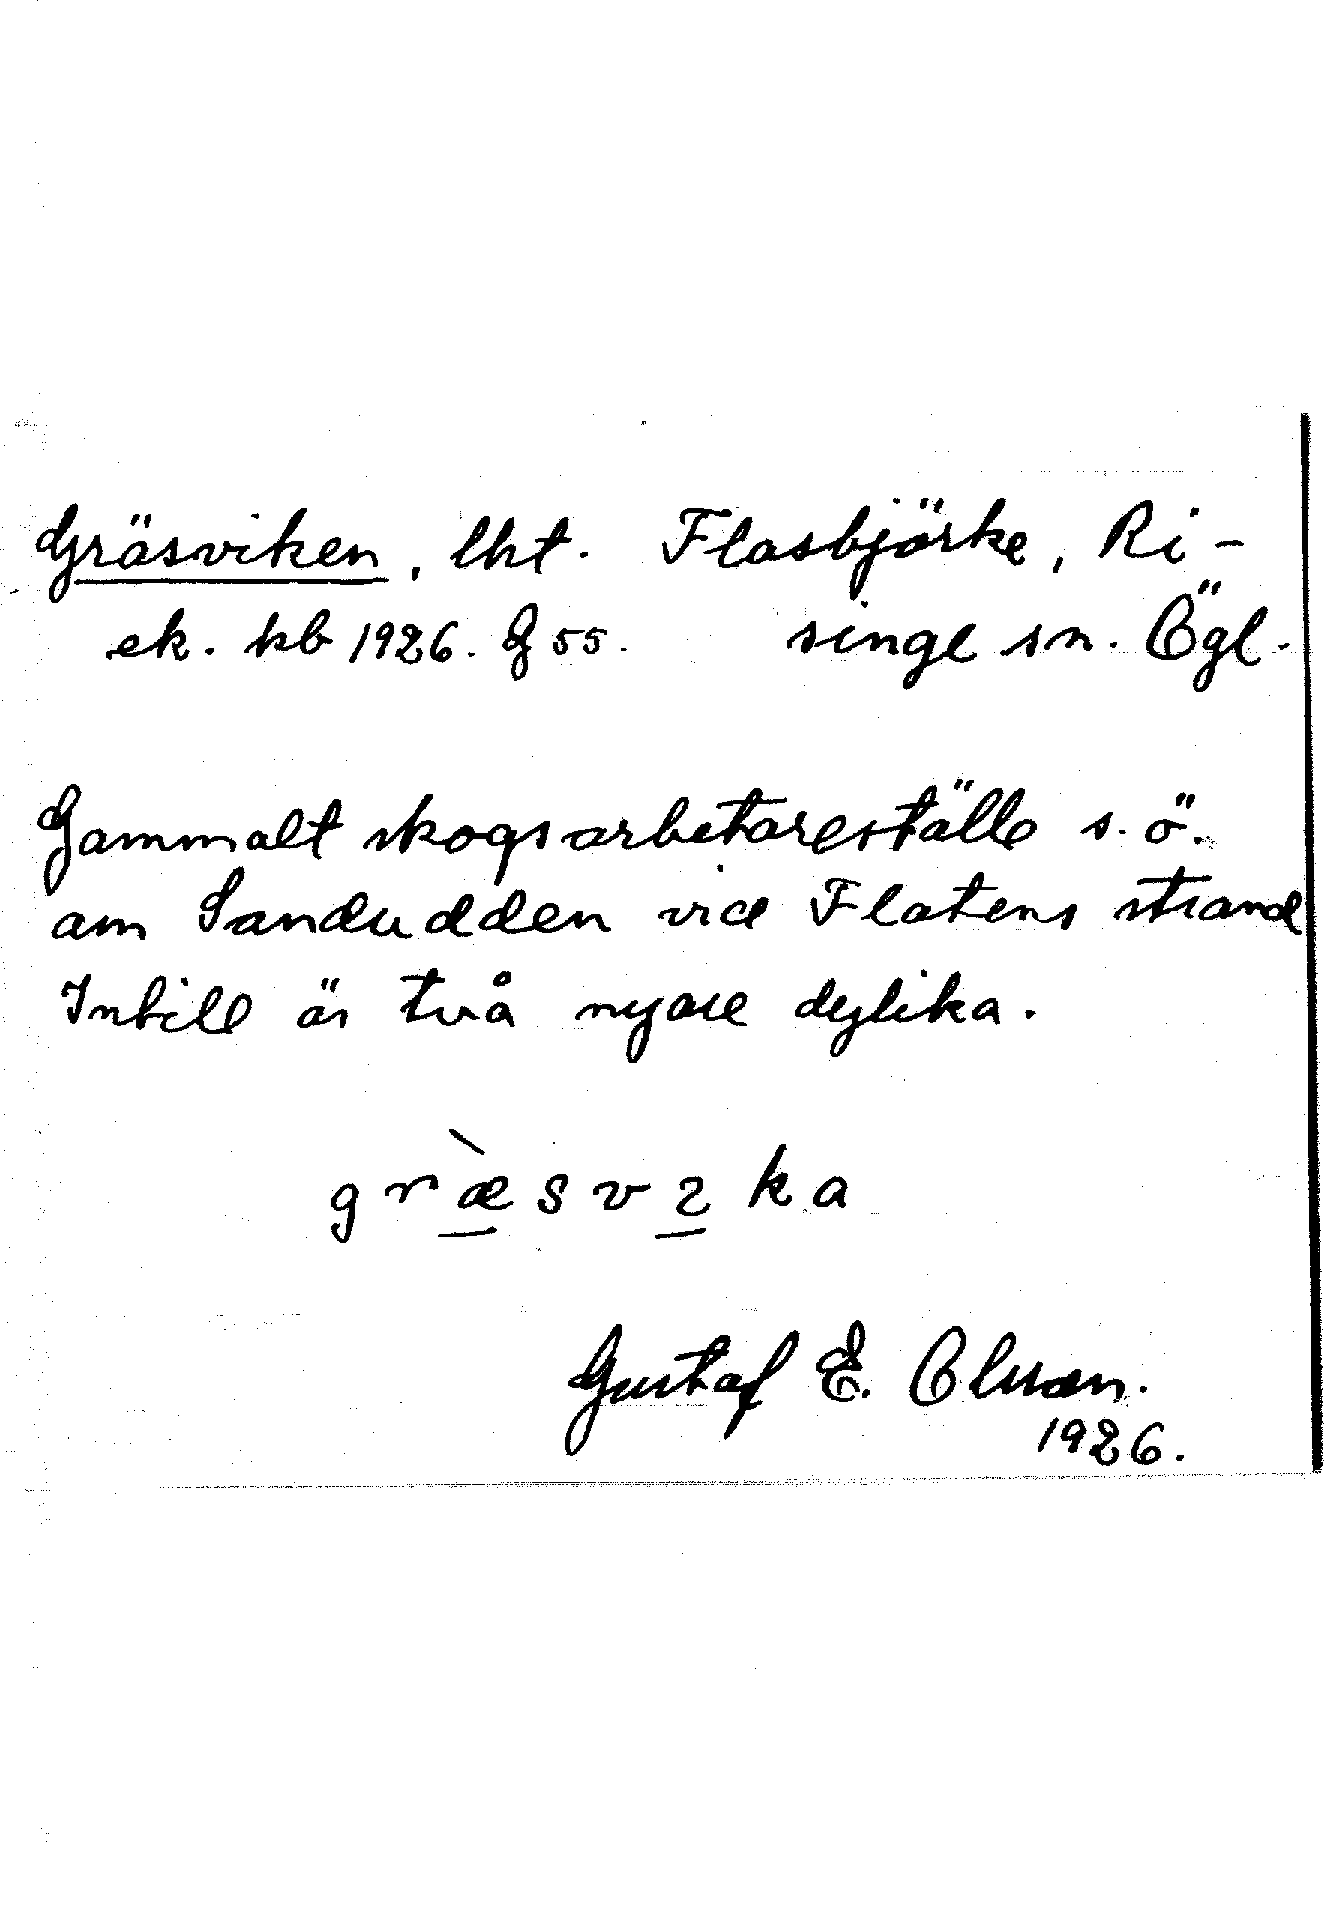 Gräsviken, lht. Flasbjörke, Ri-
ek. kb 1926. G 55. singe sn. Ögl.
Gammalt skogsarbetareställe s. ö.
om Sandudden vid Flatens strand
Intill är två nyare dylika.
græ̀svıka
Gustaf E. Olsson.
1926.